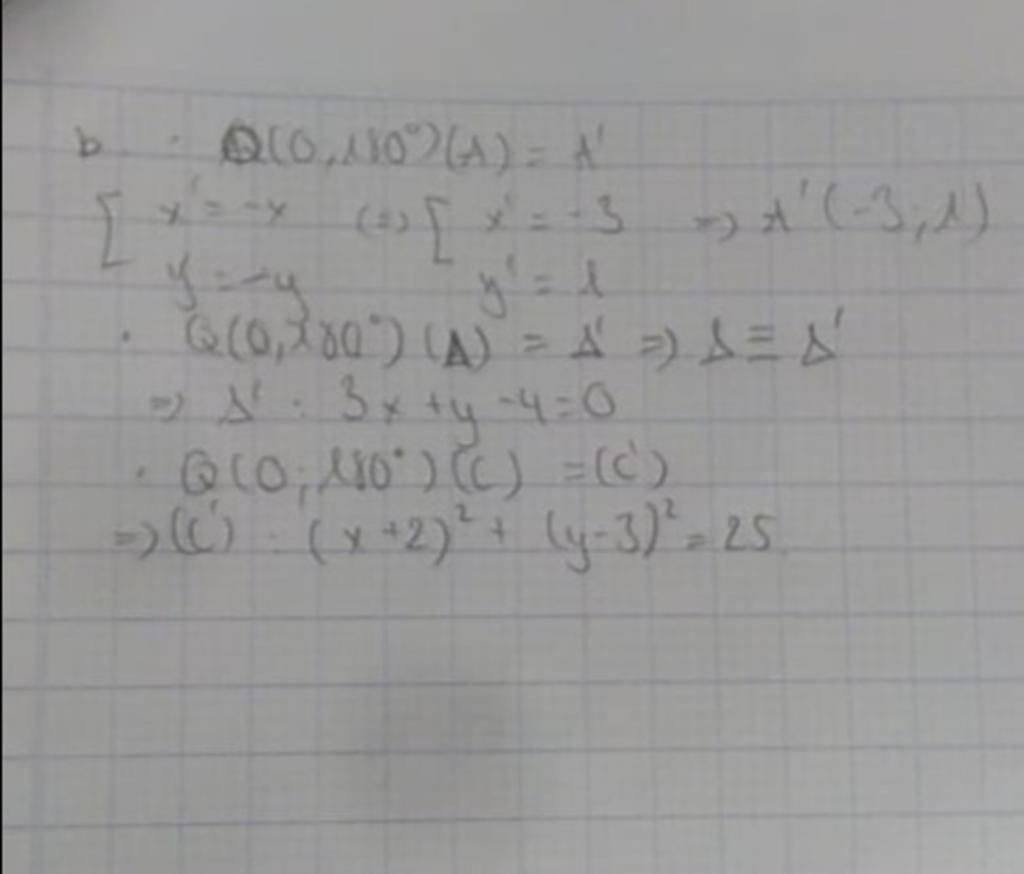 b. Q(O, 180°)(A) = A'
[ x' = -x (=) [ x' = -3 => A'(-3; 1)
y = -y y' = 1
· Q(O, 180°)(Δ) = Δ' => Δ ≡ Δ'
=> Δ' : 3x + y - 4 = 0
· Q(O; 180°)(C) = (C')
=> (C') : (x + 2)² + (y - 3)² = 25